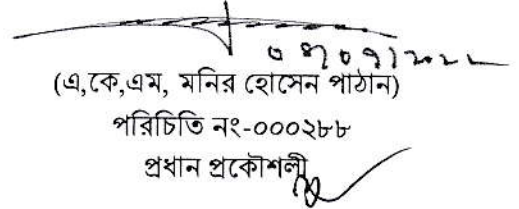 (এ,কে,এম, মনির হোসেন পাঠান)
পরিচিতি নং-০০০২৮৮
প্রধান প্রকৌশলী